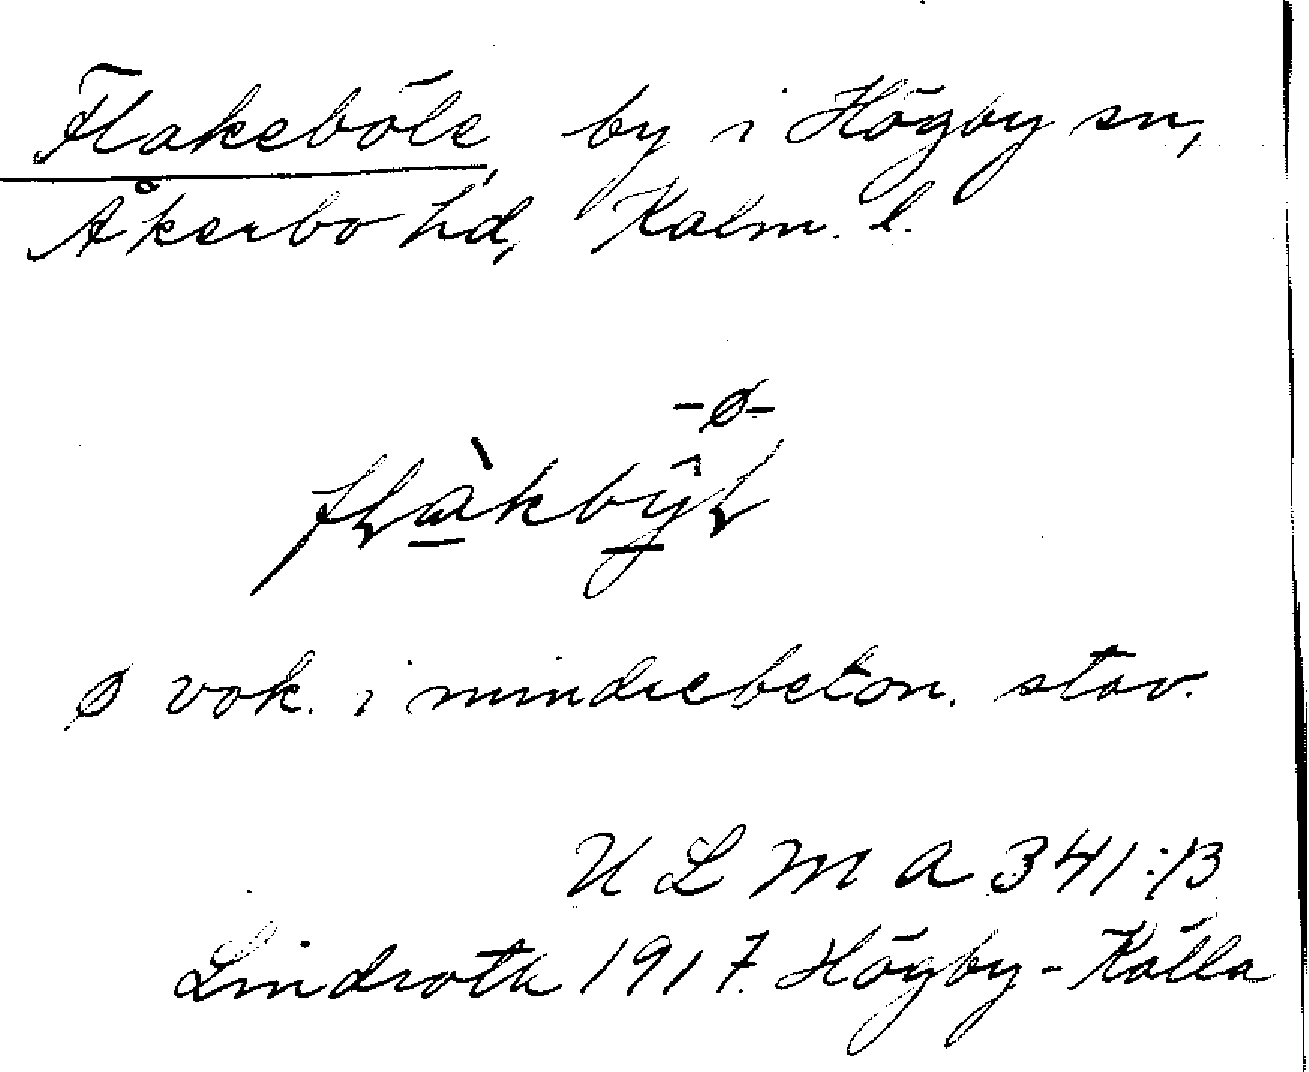 Flakeböle, by i Högby sn,
Åkerbo hd, Kalm. l.
-ø-
ø vok. i mindrebeton. stav.
ULMA 341:13
Lindroth 1917. Högby-Källa